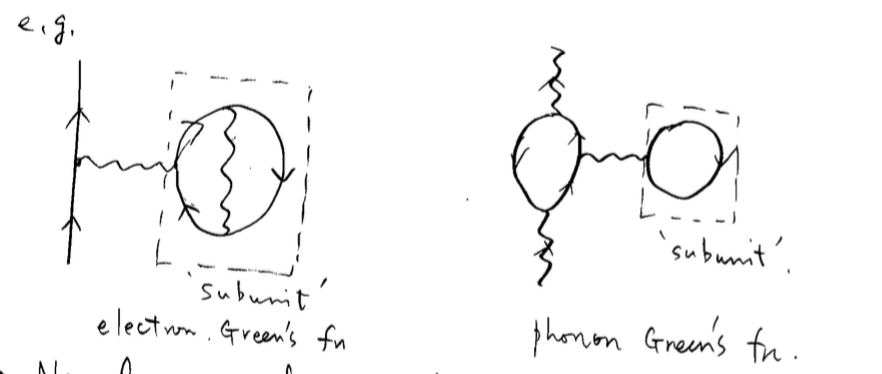 e.g.
'subunit'
electron. Green's fn
'subunit'.
phonon Green's fn.